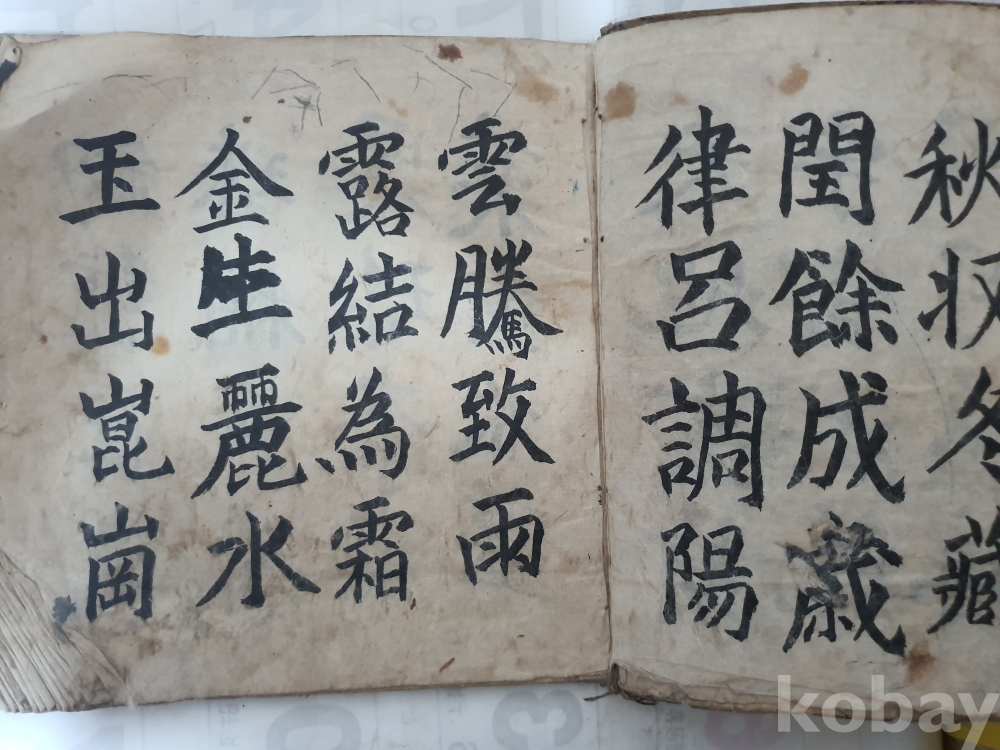 秋收冬藏
閏餘成歲
律呂調陽
雲騰致雨
露結為霜
金生麗水
玉出崑崗
kobay